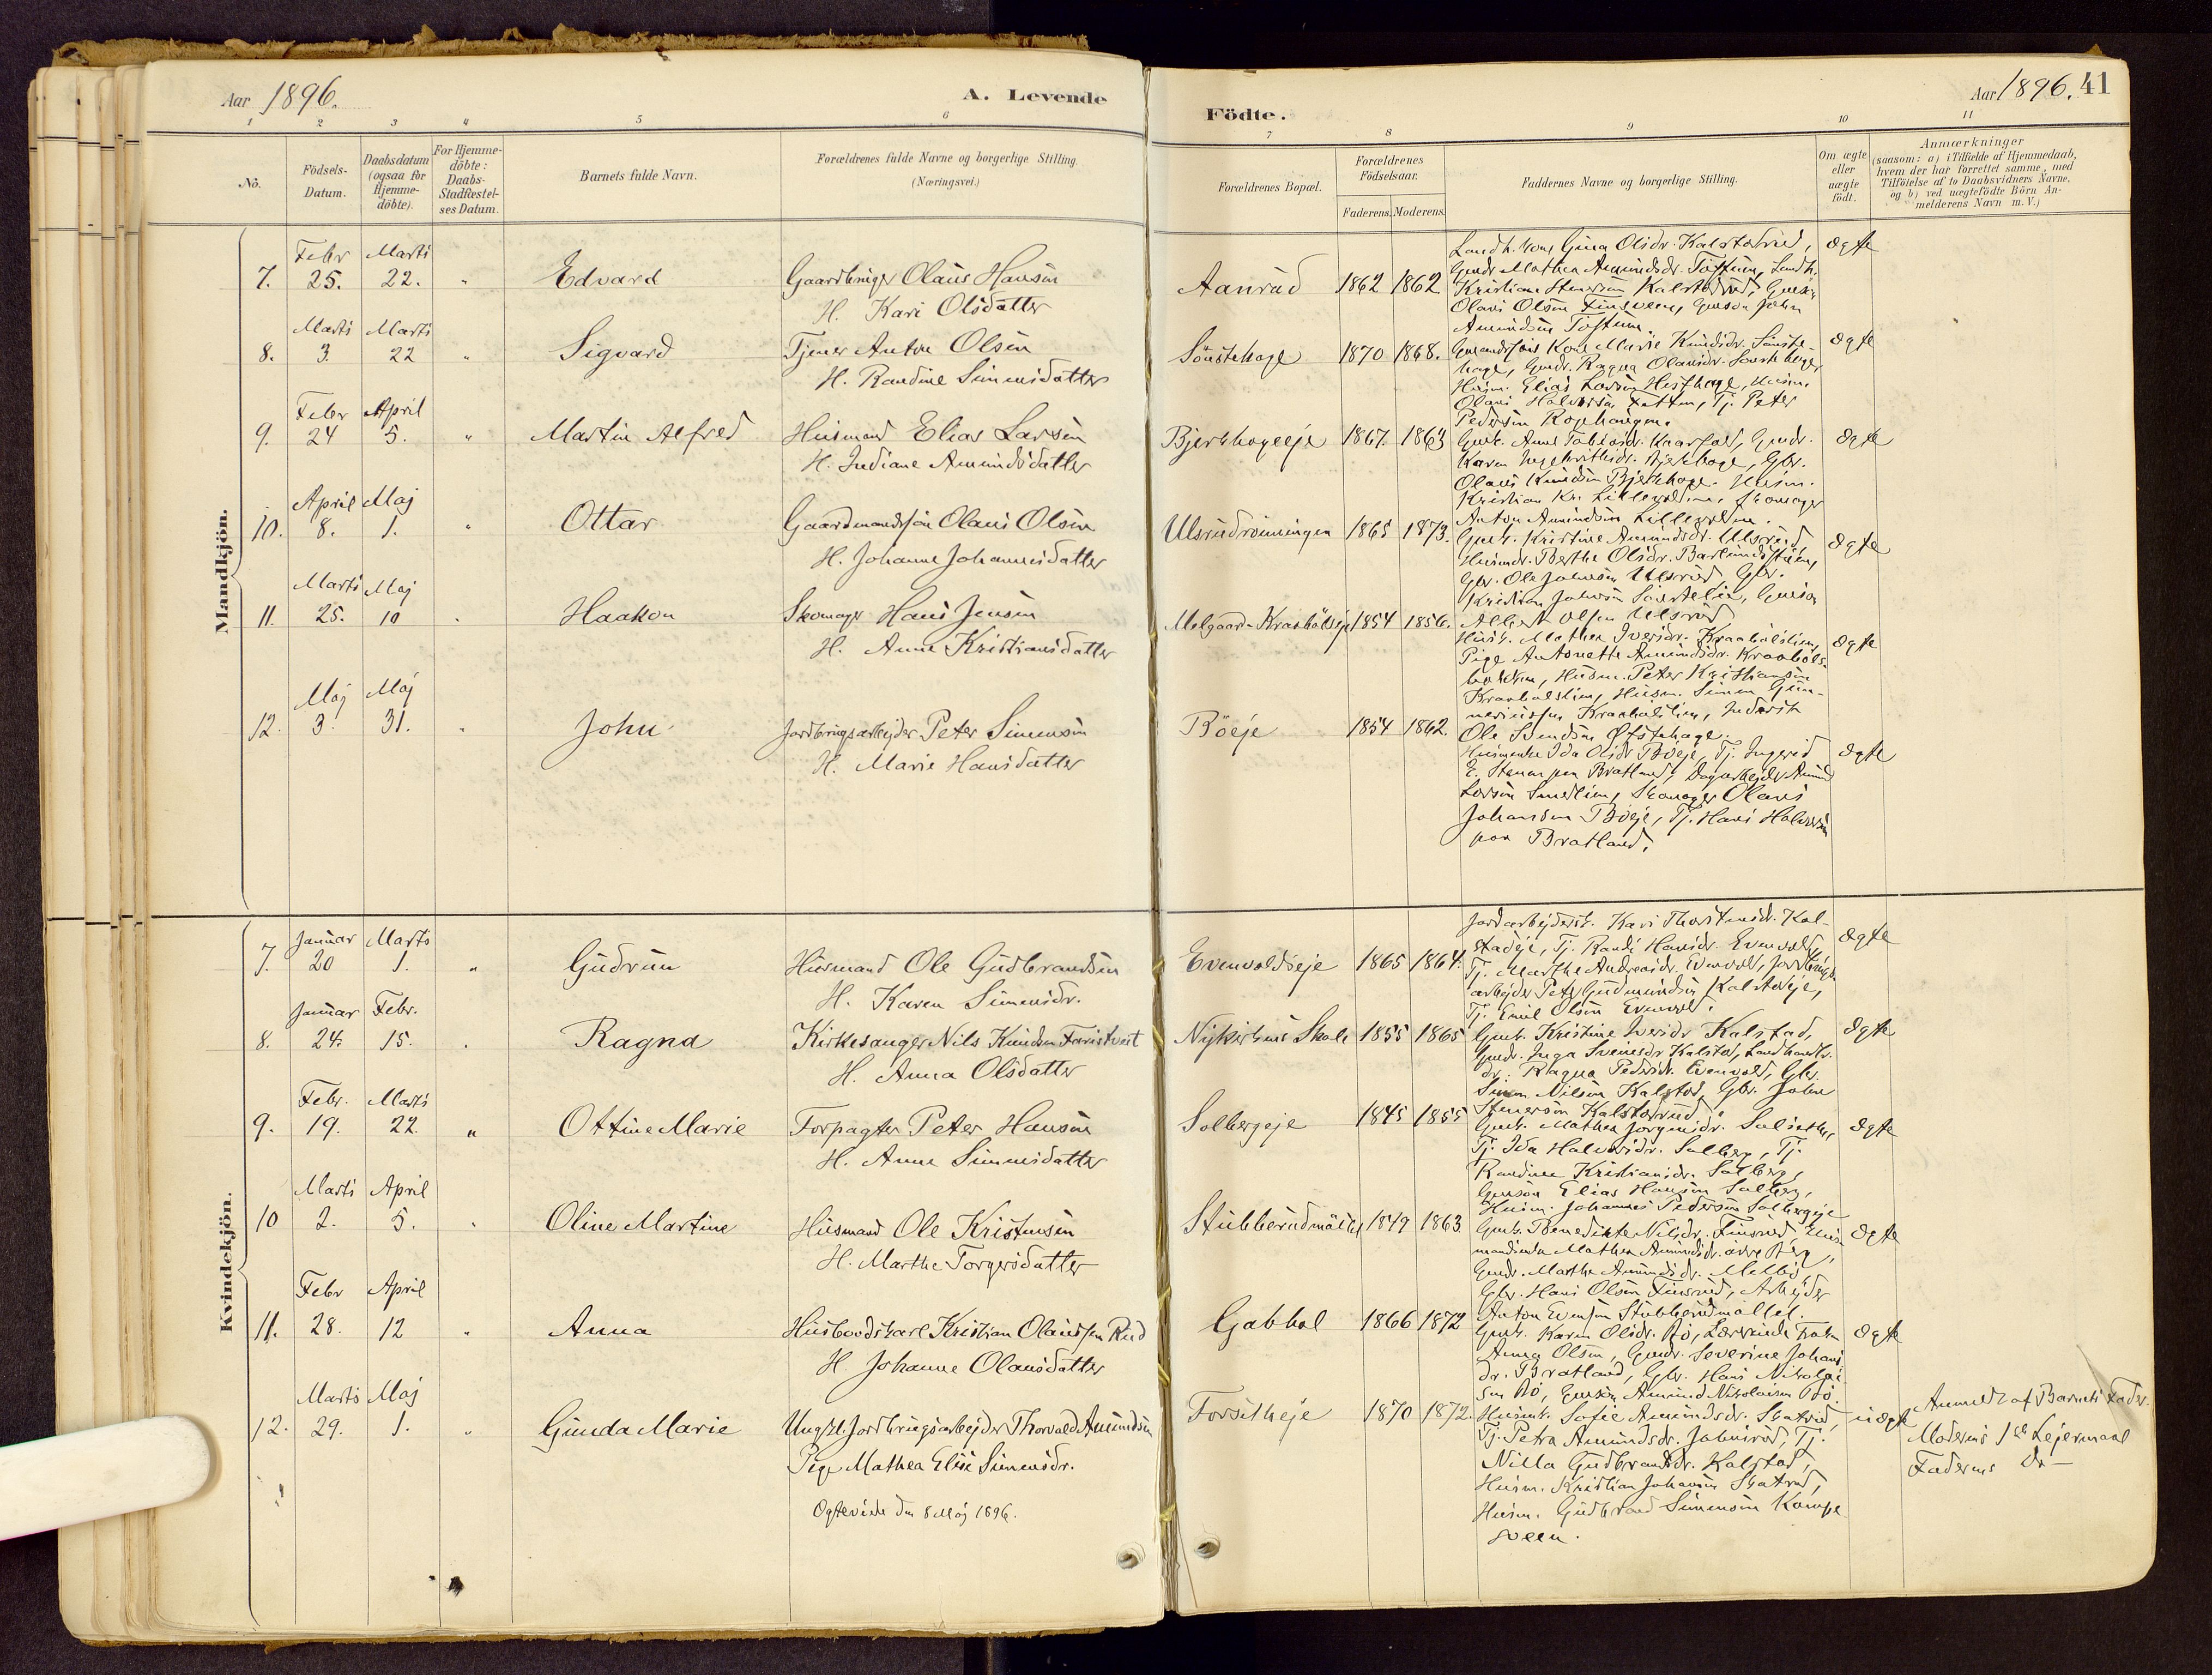 Aar 1896.
A. Levende
Födte.
Aar 1896. 41
1 2 3 4 5 6 7 8 9 10 11
No.
Födsels-
Datum.
Daabsdatum
(ogsaa for
Hjemme-
döbte).
For Hjemme-
döbte:
Daabs-
Stadfæstel-
ses Datum.
Barnets fulde Navn.
Forældrenes fulde Navne og borgerlige Stilling.
(Næringsvei.)
Forældrenes Bopæl.
Forældrenes
Födselsaar.
Faderens. Moderens.
Faddernes Navne og borgerlige Stilling.
Om ægte
eller
uægte
födt.
Anmærkninger
(saasom: a) i Tilfælde af Hjemmedaab,
hvem der har forrettet samme, med
Tilföielse af to Daabsvidners Navne,
og b) ved uægtefödte Börn An-
melderens Navn m. V.)
Mandkjön.
Febr Marts
7. 25. 22. " Edvard Gaardbruger Olaus Hansen
H. Kari Olsdatter
Aanrud 1862 1862
Landh. kone Gina Olsdr. Kalstadrud,
Gmdr. Mathea Amundsdr. Toftum, Landh.
Kristian Stenersen Kalstadrud, Gmsøn
Olaus Olsen Finsveen, Gmsøn John
Amundsen Toftum.
ægte
Marts Marts
8. 3 22 " Sigvard Tjener Anton Olsen
H. Randine Simensdatter
Sönstehage 1870 1868.
Kone Marie Knudsdr. Sönste-
hage, Gmdr. Ragna Olausdr. Sönstehage,
Husm. Elias Larsen Hesthage, Husm.
Olaus Halvorsen, Tj. Peter
Pedersen
ægte
Febr April
9. 24 5. " Martin Alfred Husmand Elias Larsen
H. Indiane Amundsdatter
Bjerkhageeje 1867. 1863
Gmk. Anne Tobiasdr., Gmdr.
Karen Bjerkhage, Gbr.
Olaus Knudsen Bjerkhage. Husm.
Kristian Kr. Skomager
Anton Amundsen
ægte
April Maj
10. 8. 1. " Ottar Gaardmandssön Olaus Olsen
H. Johanne Johannesdatter
Ulsrudrönningen 1865 1873.
Gmk. Kristine Amundsdr. Ulsrud,
Husmdr. Berthe Olsdr.
Gbr. Ole Johnsen Ulsrud, Gbr.
Kristian Johnsen, Gmsøn
Albert Olsen Ulsrud
ægte
Marts Maj
11. 25. 10 " Haakon Skomager Hans Jensen
H. Anne Kristiansdatter
Melgaard-Kraabölseje 1854 1856.
Husk. Mathea Iversdr. Kraabölslien,
Pige Antonette Amundsdr. Kraaböls-
bakken, Husm. Peter Kristiansen
Kraabölslien, Husm. Simen Gun-
neriussen Kraabölslien, Inderst
Ole Svendsen Øfstehage.
ægte
Maj Maj
12. 3. 31. " John Jordbrugsarbejder Peter Simensen
H. Marie Hansdatter
Böeje 1854 1862.
Husmenke Ida Olsdr. Böeje, Tj. Ingerid
E. Stenar paa Bratland, Dagarbejder Amund
Larsen Smedlien, Skomager Olaus
Johansen Böeje, Tj. Hans Halvorsen
paa Bratland.
ægte
Kvindekjön.
Januar Marts
7. 20 1. " Gudrun Husmand Ole Gudbrandsen
H. Karen Simensdr.
Evenvoldseje 1865 1864.
Jordarbejdersk. Kari Thorstensdr. Kal-
stadeje, Tj. Randi Hansdr. Evenvold,
Tj. Marthe Andreasdr. Evenvold, Jordbrugs-
arbejder Peter Gudmundsen Kalstadeje,
Tj. Emil Olsen Evenvold.
ægte
Januar Febr.
8. 24. 15. " Ragna Kirkesanger Nils Knudsen Faristveit
H. Anna Olsdatter
Nykirkens Skole 1855 1865
Gmk. Kristine Iversdr. Kalstad,
Gmdr. Inga Svensdr. Kalstad, Landhandl.
dr. Ragna Pedersdr. Evenvold, Gbr.
Simen Nilsen Kalstad, Gbr. John
Stenersen Kalstadrud
ægte
Febr. Marts
9. 19. 22. " Ottine Marie Forpagter Peter Hansen
H. Anne Simensdatter
Solbergeje 1845 1855
Gmk. Mathea Jorgensdr.
Tj. Ida Halvorsdr. Solberg, Tj.
Randine Kristiansdr. Solberg,
Gmsøn Elias Hansen Solberg,
Husm. Johannes Pedersen Solbergeje
ægte
Marts April
10 2. 5. " Oline Martine Husmand Ole Kristensen
H. Marthe Torgersdatter
Stubberudmället 1849 1863
Gmk. Benedikte Nilsdr. Finsrud, Hus-
mandsenke Mathea Amundsdr. övre Berg,
Gmdr. Marthe Amundsdr. Melbö
Gbr. Hans Olsen Finsrud, Arbejder
Anton Evensen Stubberudmället.
ægte
Febr April
11. 28. 12 " Anna Husbondskarl Kristian Olaussen Rud
H. Johanne Olausdatter
Gabhol 1866 1872
Gmk. Karen Olsdr. Bö, Lærerinde Frøken
Anna Olsen, Gmdr. Severine Johans-
dr. Bratland, Gbr. Hans Nikolai-
sen Bö, Gmsøn Amund Nikolaisen Bö
ægte
Marts Maj
12. 29. 1. " Gunda Marie Ungk. Jordbrugsarbejder Thorvald Amundsen
Pige Mathea Elise Simensdr.
Ogteviede den 8 Maj 1896.
Forsetheje 1870 1872.
Husmk. Sofie Amundsdr. Skatrud,
Tj. Petra Amundsdr. Johnsrud, Tj.
Nilla Gudbrandsdr. Kalstad,
Husm. Kristian Johansen Skatrud,
Husm. Gudbrand Simensen Kampe-
sveen.
uægte
Anmeldt af Barnets Fader.
Moderens 1ste Lejermaal
Faderens Do —